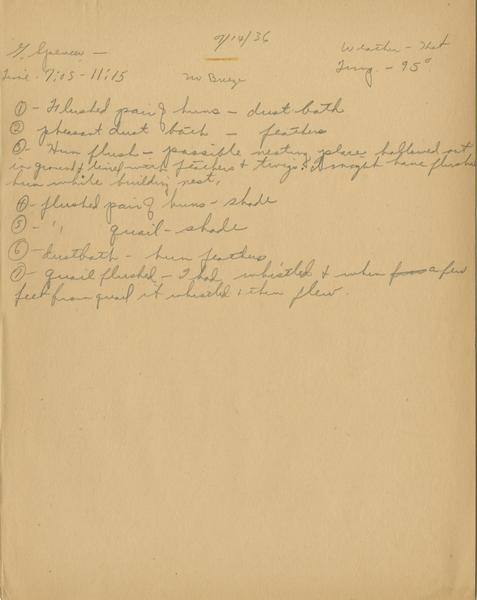 7/14/36
G. Spencer — Weather - Hot
Time - 7:05 - 11:15 No Breeze Temp - 95°
① - Flushed pair of huns - dust bath
② pheasant dust bath - feathers
③ - Hun flush - possible nesting place hollowed out
in ground & lined with feathers & twigs. I might have flushed
hun while building nest.
④ - flushed pair of huns - shade
⑤ - " quail - shade
⑥ - dustbath - hun feathers
⑦ - quail flushed - I had whistled & when a few
feet from quail it whistled & then flew.